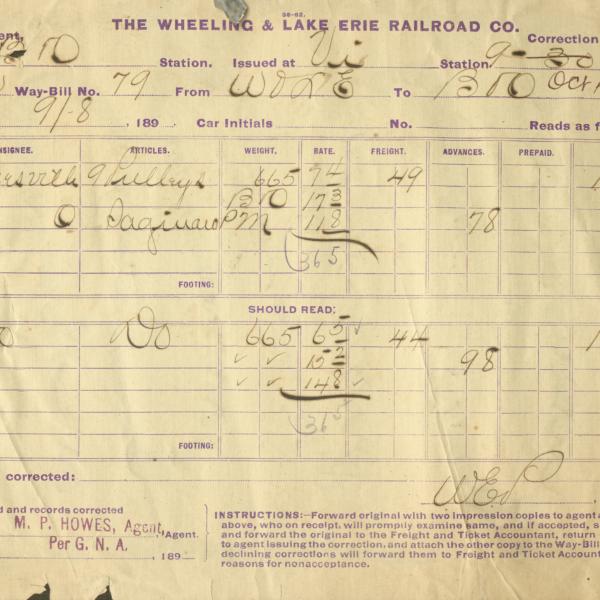 98-92.
THE WHEELING & LAKE ERIE RAILROAD CO.
Correction
ent, B & O Station. Issued at Station, 9-30
Way-Bill No. 79 From W & L E To B & O Oct
9/-8, 189 Car Initials No. Reads as f
NSIGNEE. ARTICLES. WEIGHT. RATE. FREIGHT. ADVANCES. PREPAID.
esville 9 Pulleys 665 74 49
B & O 173
O Saginaw P M 118 78
365
FOOTING:
SHOULD READ:
o Do 665 65 44
152 98
148
36
FOOTING:
corrected:
d and records corrected
M. P. HOWES, Agent, Agent.
Per G. N. A.
189
INSTRUCTIONS:—Forward original with two impression copies to agent a
above, who on receipt, will promptly examine same, and if accepted, s
and forward the original to the Freight and Ticket Accountant, return
to agent issuing the correction, and attach the other copy to the Way-Bill
declining corrections will forward them to Freight and Ticket Accountan
reasons for nonacceptance.